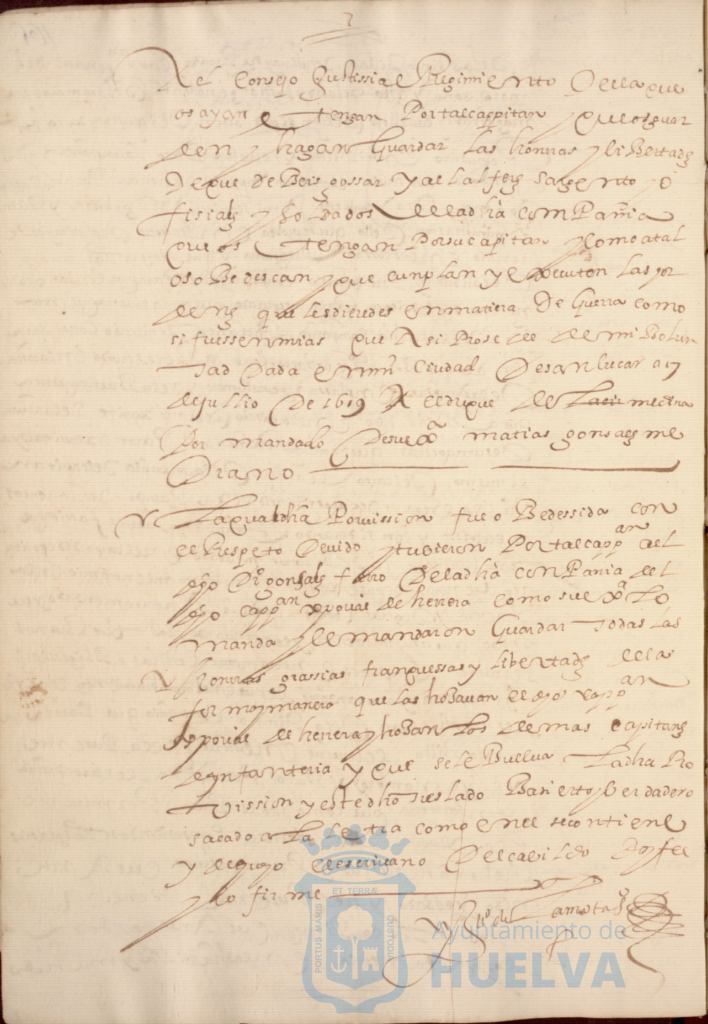 Al Consejo Justissia e Regimiento Della que
os ayan e tengan Por tal cappitan y que os guar
den y hagan Guardar las honrras y libertades
De que debeis gossar y a el alferes sargento o
fisiales y soldados de la dha compañia
que os tengan Por su capitan y como a tal
os obedescan y que cunplan y executen las or
denes que les dieredes en materia De Guerra como
si fuessen mias que Asi Prosede de mi Bolun
tad Dada en mi Ciudad De san lucar a 17
de jullio De 1619 el duque de medina
Por mandado Desu exª matias gonsales me
Drano
La qual dha Provission fue obedessida con
el Respeto Devido y tubieron Por tal capp an a el
dho Dº gonsales de la dha conPañia del
dho capp an de herrera como su exª lo
manda y le mandaron Guardar todas las
honrras grassias franquessas y libertades de la
forma y manera que las gosavan el dho capp an
de herrera y gosan los demas capitanes
de ynfanteria y que se le Buelva la dha Pro
vission y este dho treslado Basierto y berdadero
sacado a la letra como en el se contiene
y de yuso el escrivano Del cabildo doy fee
y lo firme
ET TERRÆ
PORTUS MARIS
CUSTODIA
Ayuntamiento de
HUELVA